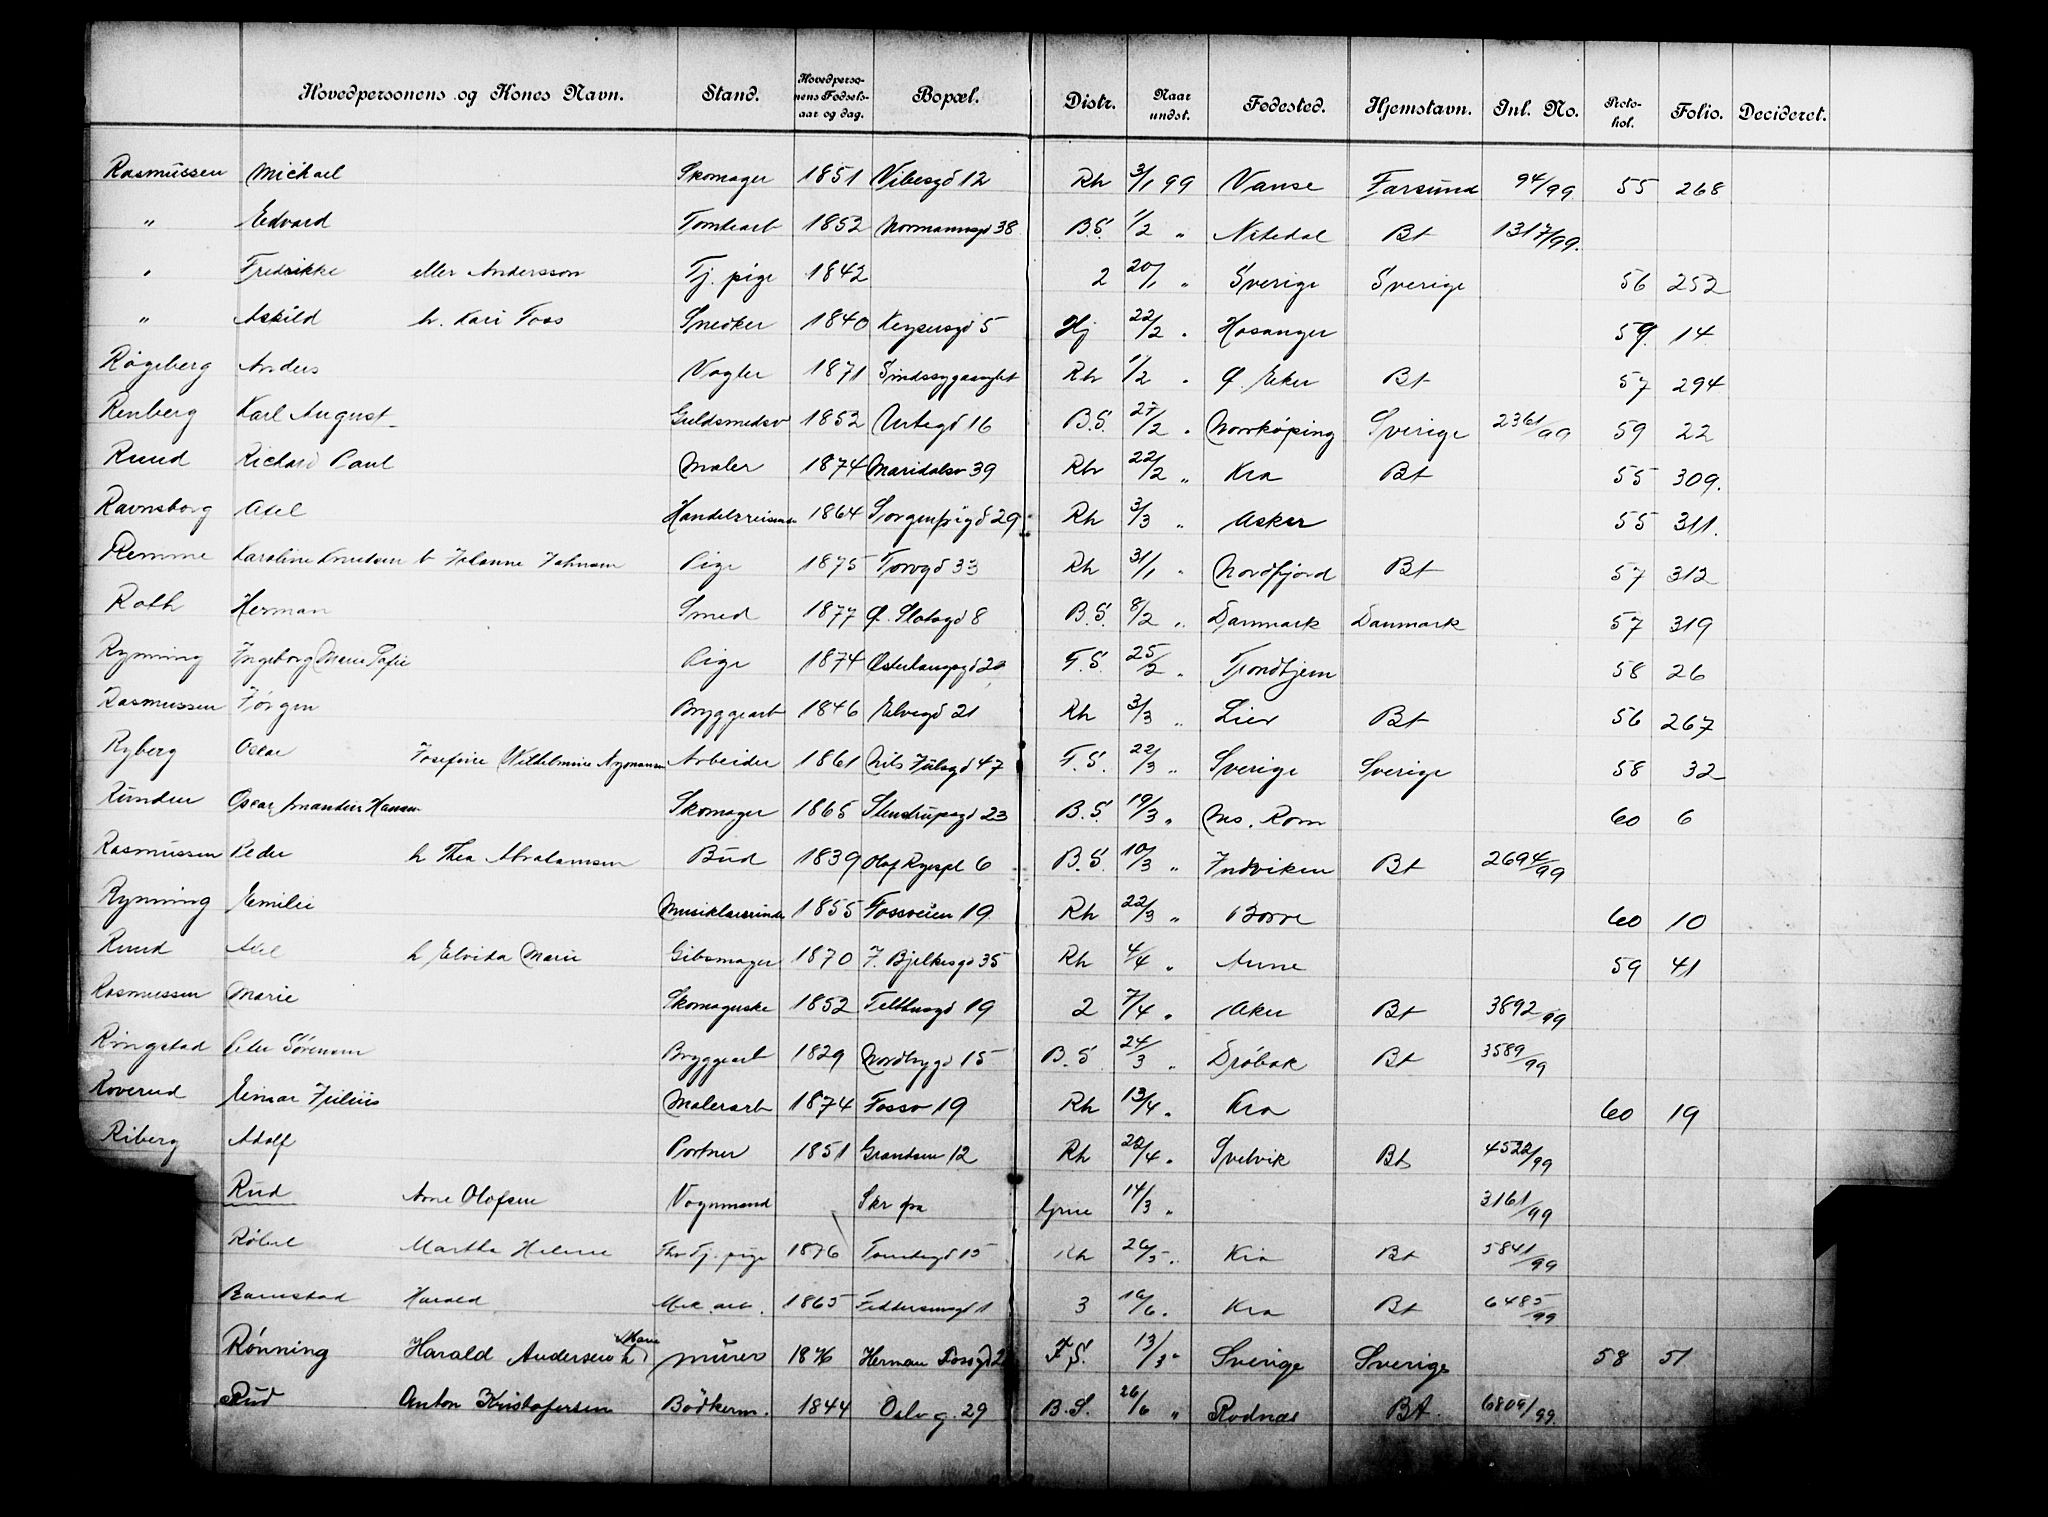 Hovedpersonens og Kones Navn. Stand. Hovedperso-nens Fødsels-aar og dag. Bopæl. Distr. Naar undst. Fødested. Hjemstavn. Inl. No. Proto-kol. Folio. Decideret.
Rasmussen Michael Skomager 1851 Vibesgd 12 Rh 3/1 99 Vanse Farsund 94/99 55 268
" Edvard Tomtearb 1852 Normannsgd 38 B.S. 1/2 " Nitedal Bt 1317/99.
" Fredrikke eller Andersson Tj. pige 1842 2 20/1 " Sverige Sverige 56 252
" Askild h. Kari Foss Snedker 1840 Keysersgd 5 Hj 22/2 " Hosanger 59 14
Røgeberg Anders Vogter 1871 Sindssygeasylet Rh 1/2 " Ø. Eker Bt 57 294
Renberg Karl August Guldsmedsv 1852 Urtegd 16 B.S. 27/2 " Norrköping Sverige 2361/99 59 22
Ruud Richard Paul Maler 1874 Maridalsv 39 Rh 22/2 " Kra Bt 55 309.
Ravnsborg Axel Handelsreisende 1864 Sorgenfrigd 29 Rh 3/3 " Asker 55 311.
Remme Karoline Knudsen b Johanne Johnsen Pige 1875 Torvgd 33 Rh 31/1 " Nordfjord Bt 57 312
Roth Herman Smed 1877 Ø. Slotsgd 8 B.S. 8/2 " Danmark Danmark 57 319
Rynning Ingeborg Marie Sofie Pige 1874 Osterhausgd 20 F.S. 25/2 " Trondhjem 58 26
Rasmussen Jørgen Bryggearb 1846 Elvegd 21 Rh 3/3 " Lier Bt 56 267
Ryberg Oscar Josefine Wilhelmine Arbeider 1861 Nils Julsgd 47 F.S. 22/3 " Sverige Sverige 58 32
Runden Oscar Amandus Hansen Skomager 1865 Stenstrupsgd 23 B.S. 19/3 " Ns. Rom 60 6
Rasmussen Peder h Thea Abrahamsen Bud 1839 Olaf Ryespl 6 B.S. 10/3 " Indviken Bt 2694/99
Rynning Emilie Musiklærerinde 1855 Fossveien 19 Rh 22/3 " Borre 60 10
Ruud Axel h Elvida Marie Gibsmager 1870 J. Bjelkesgd 35 Rh 4/4 " Aune 59 41
Rasmussen Marie Skomagerske 1852 Telthusgd 19 2 7/4 " Aker Bt 3892/99
Ringstad Peter Sörensen Bryggearb 1829 Nordbygd 15 B.S. 24/3 " Dröbak Bt 3589/99
Roverud Einar Julius Malerarb 1874 Fossv 19 Rh 13/4 " Kra 60 19
Riberg Adolf Portner 1851 Grændsen 12 Rh 22/4 " Svelvik Bt 4522/99
Rud Arne Olafsen Vognmand Skr fra Grue 14/3 " 3161/99
Røbel Martha Helene Tj. pige 1876 Tomtegd 15 Rh 26/5 " Kra Bt 5841/99
Ramstad Harald Mek. arb. 1865 Feddersensgd 1 3 16/6 " Kra Bt 6485/99
Rønning Harald Andersen h Marie murer 1876 Herman Fossgd F.S. 13/3 " Sverige Sverige 58 51
Rud Anton Kristofersen Bödkerm. 1844 Oslo g. 29 B.S. 26/6 " Rodnæs Bt. 6809/99.